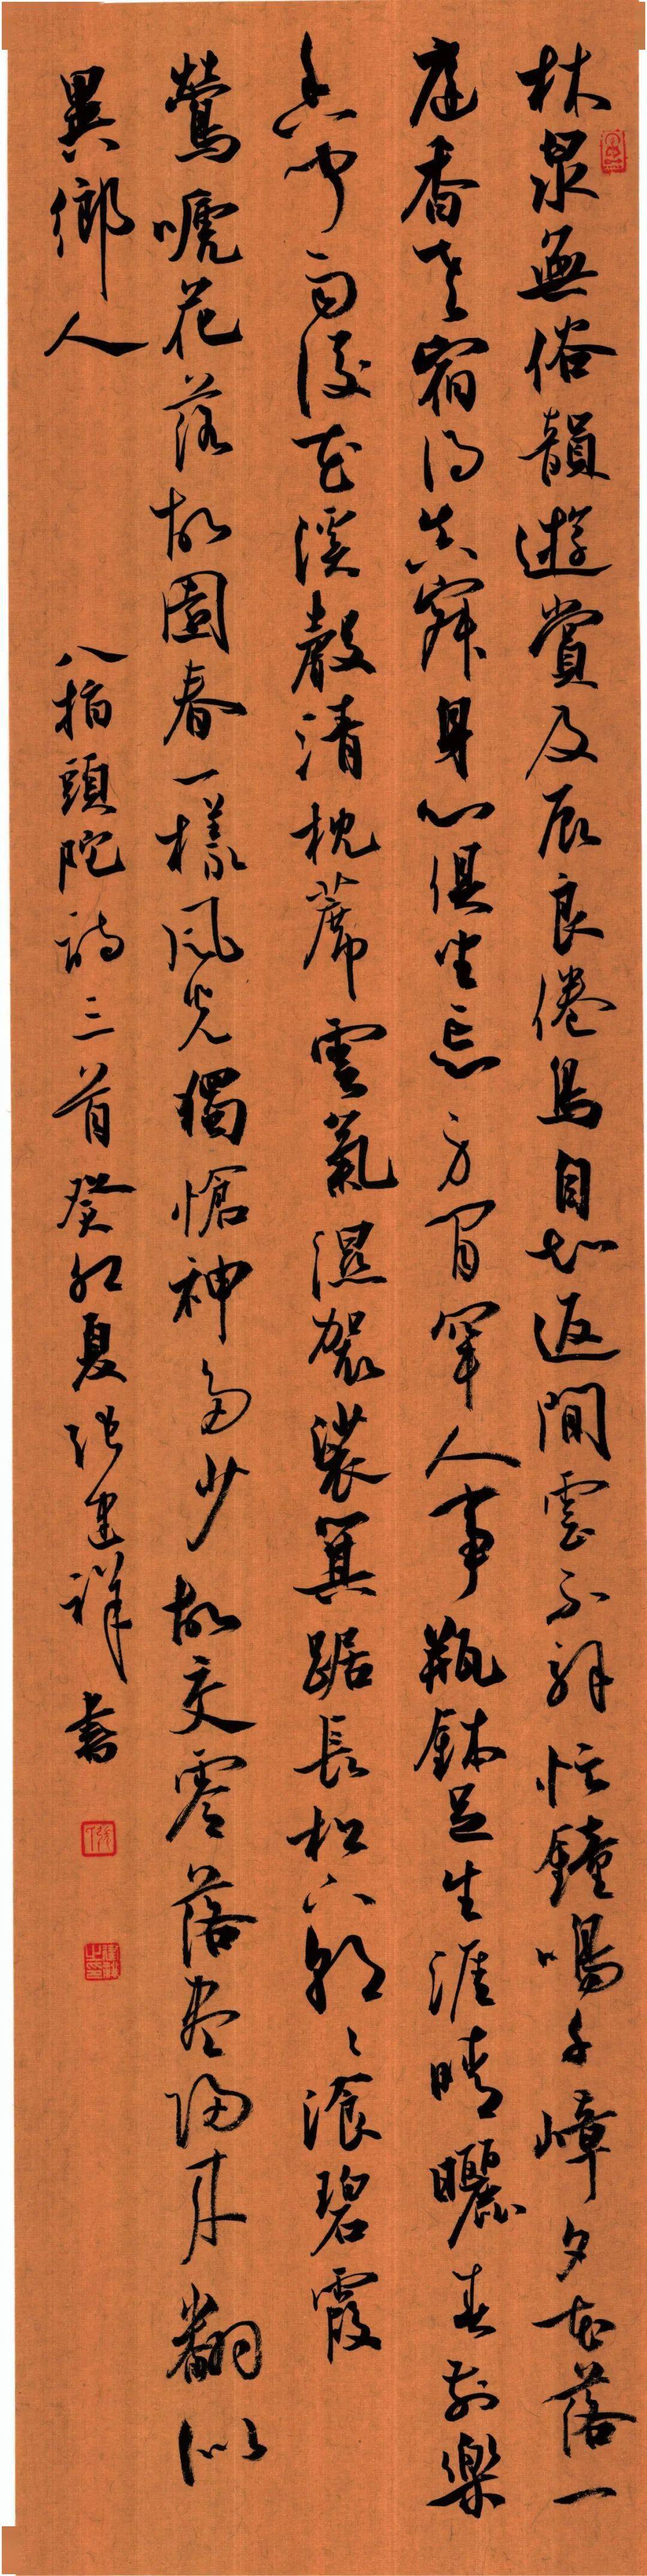 林泉無俗韻遊賞及辰良倦鳥自知返閒雲不解忙鐘鳴千嶂夕花落一
庭香老宿問真寂身心俱坐忘方寸罕人事瓶鉢足生涯晴曬春前藥
香雨後花溪聲清枕蓆雲氣濕袈裟箕踞長松下朝朝湌碧霞
鶯嗁花落故園春一樣風光獨愴神多少故交零落盡歸來翻似
異鄉人
八指頭陀詩三首癸卯夏張建祥書